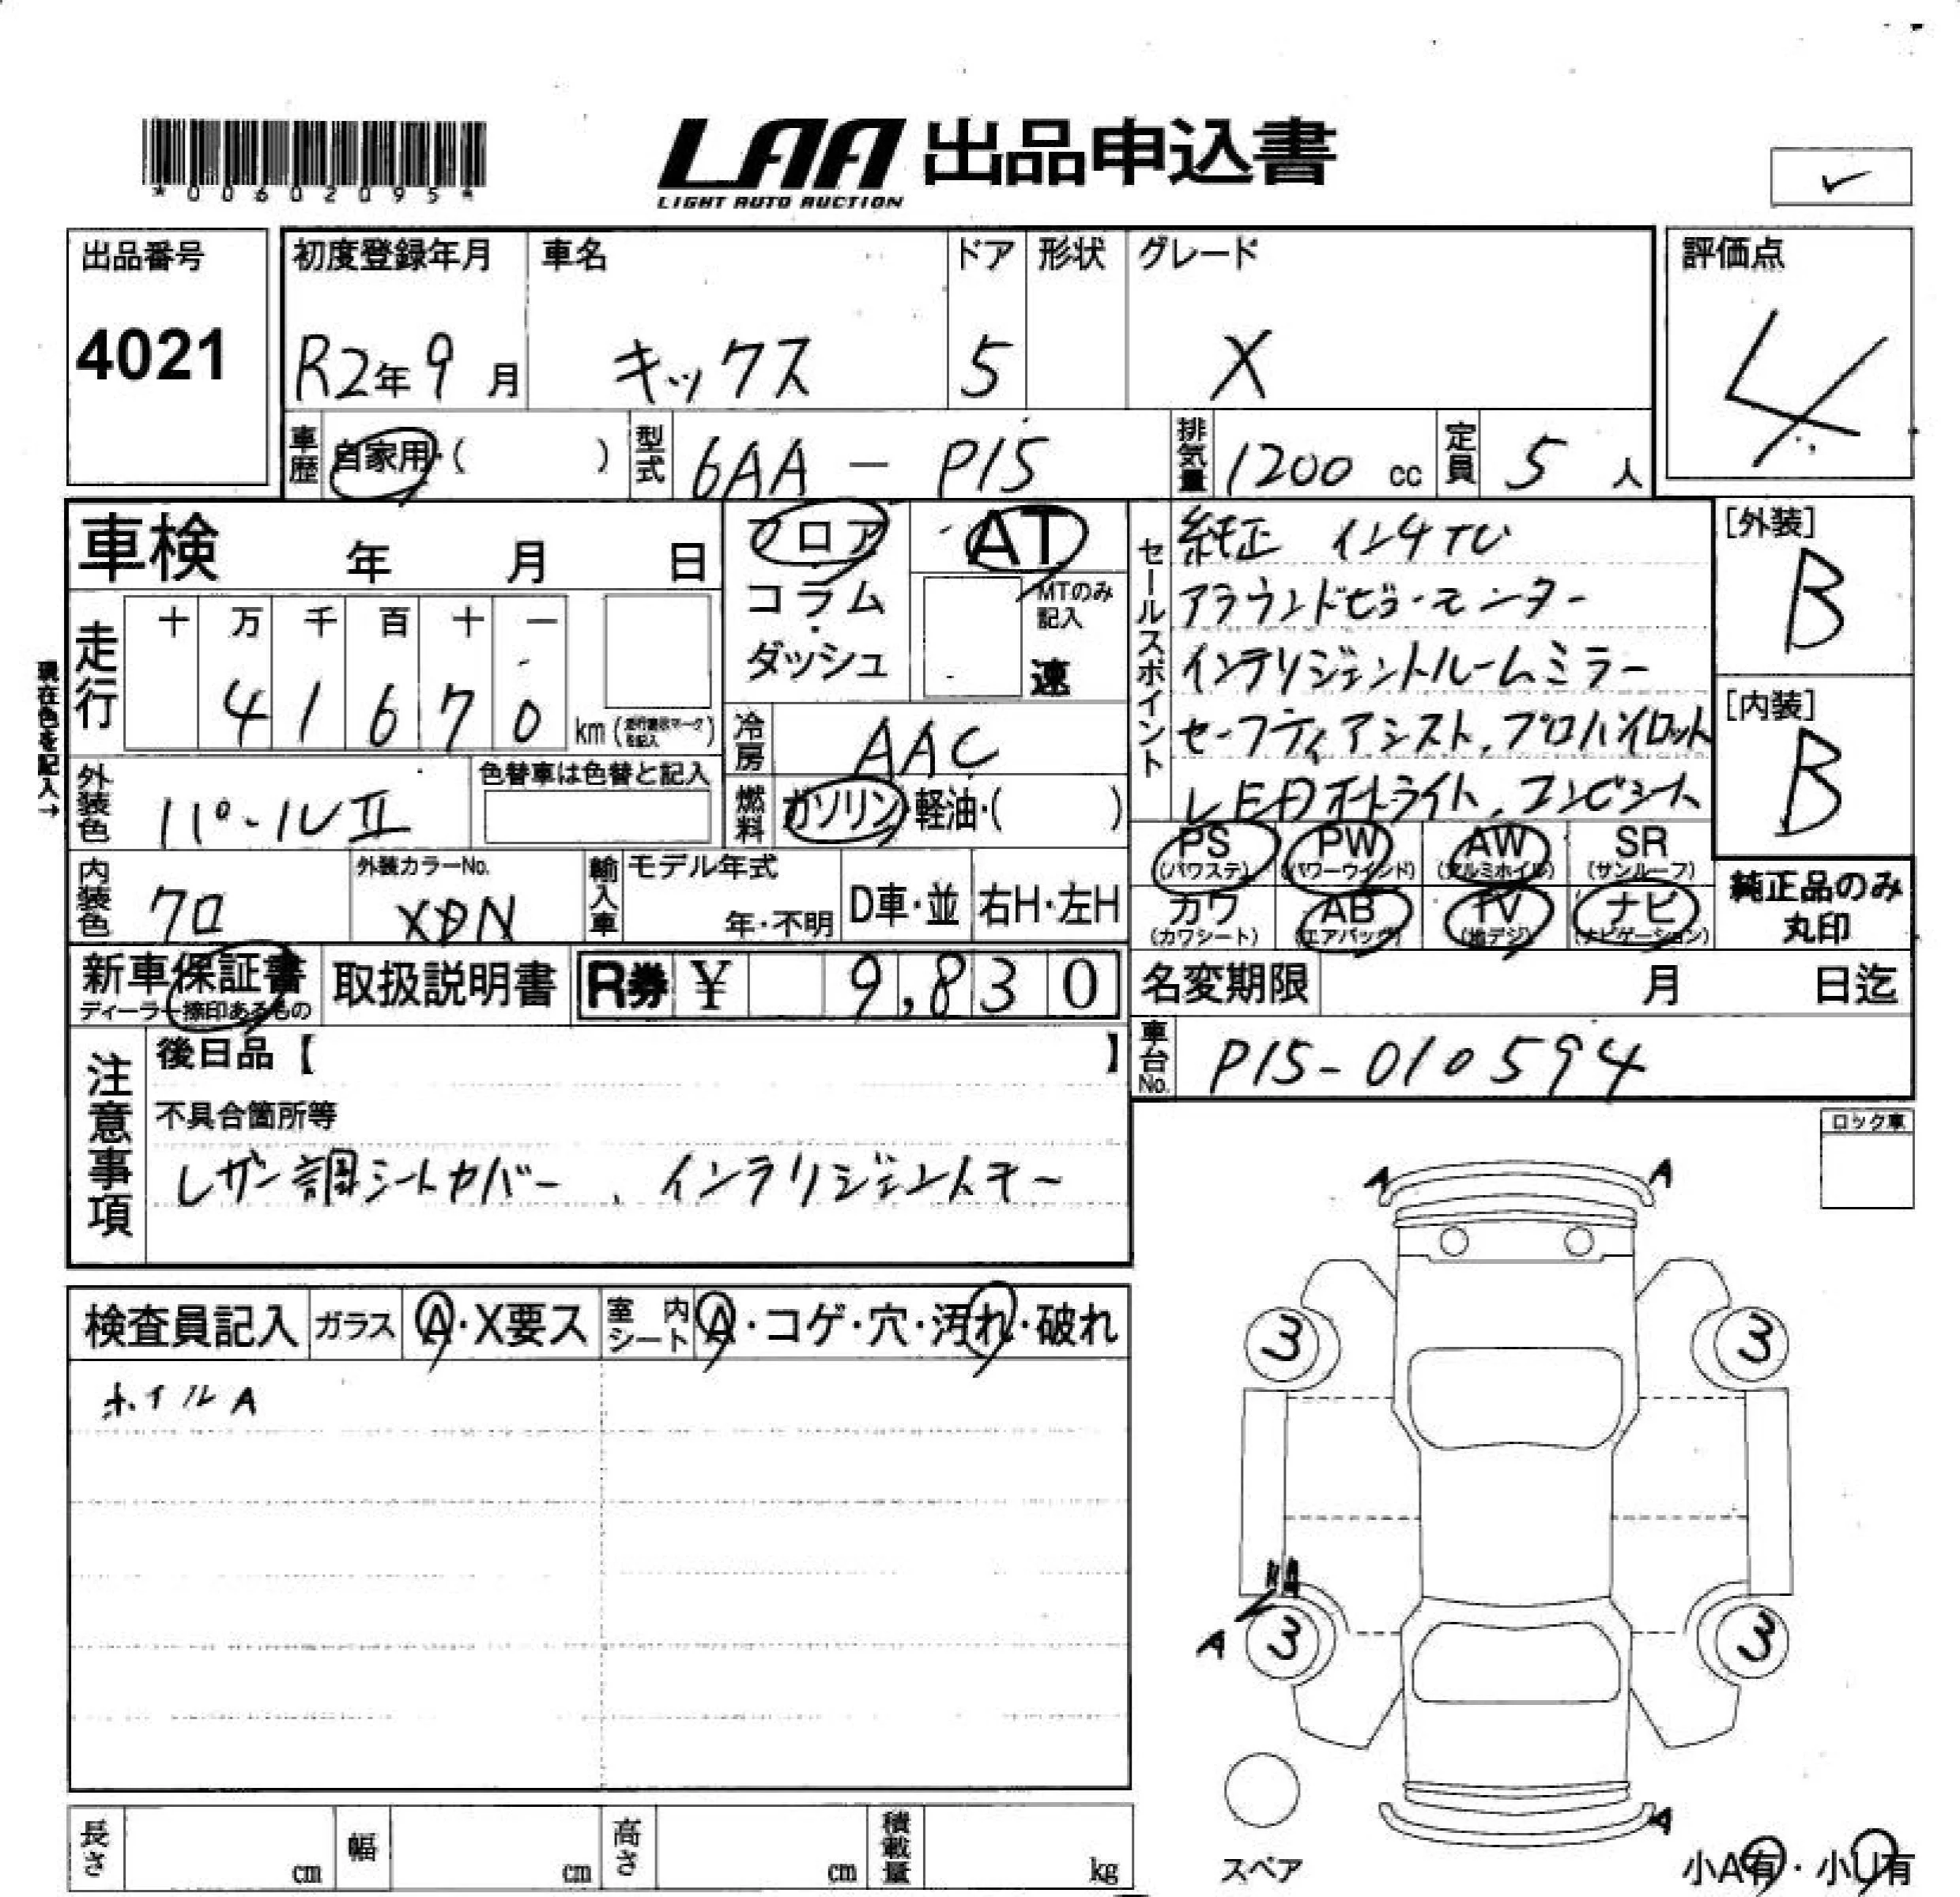 *00602095*
LAA 出品申込書
LIGHT AUTO AUCTION
✓
出品番号
4021
初度登録年月
R2年 9月
車名
キックス
ドア
5
形状
グレード
X
評価点
4
車歴
自家用・( )
型式
6AA - P15
排気量
1200 cc
定員
5 人
車検 年 月 日
現在色を記入→
走行
十 万 千 百 十 一
4 1 6 7 0 km
フロア
コラム・
ダッシュ
AT
MTのみ記入
速
冷房
AAC
燃料
ガソリン・軽油・( )
外装色
パールⅡ
色替車は色替と記入
内装色
クロ
外装カラーNo.
XDN
輸入車
モデル年式
年・不明
D車・並
右H・左H
セールスポイント
純正 インチTV
アラウンドビューモニター
インテリジェントルームミラー
セーフティアシスト、プロパイロット
LEDオートライト、コンビシート
[外装]
B
[内装]
B
PS PW AW SR
(パワステ) (パワーウインド) (アルミホイル) (サンルーフ)
カワ AB TV ナビ
(カワシート) (エアバッグ) (地デジ) (ナビゲーション)
純正品のみ
丸印
新車保証書
ディーラー捺印あるもの
取扱説明書
R券 ¥ 9,830
名変期限 月 日迄
車台No.
P15-010594
注意事項
後日品【 】
不具合箇所等
レザー調シートカバー、インテリジェントキー
ロック車
検査員記入
ガラス
A・X要ス
室内シート
A・コゲ・穴・汚れ・破れ
ホイルA
A A
3 3
A 3 3
A
スペア
小A有・小U有
長さ cm
幅 cm
高さ cm
積載量 kg